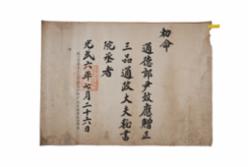 勅命
通德郎尹致應贈正
三品通政大夫秘書
院丞者
光武六年七月二十六日